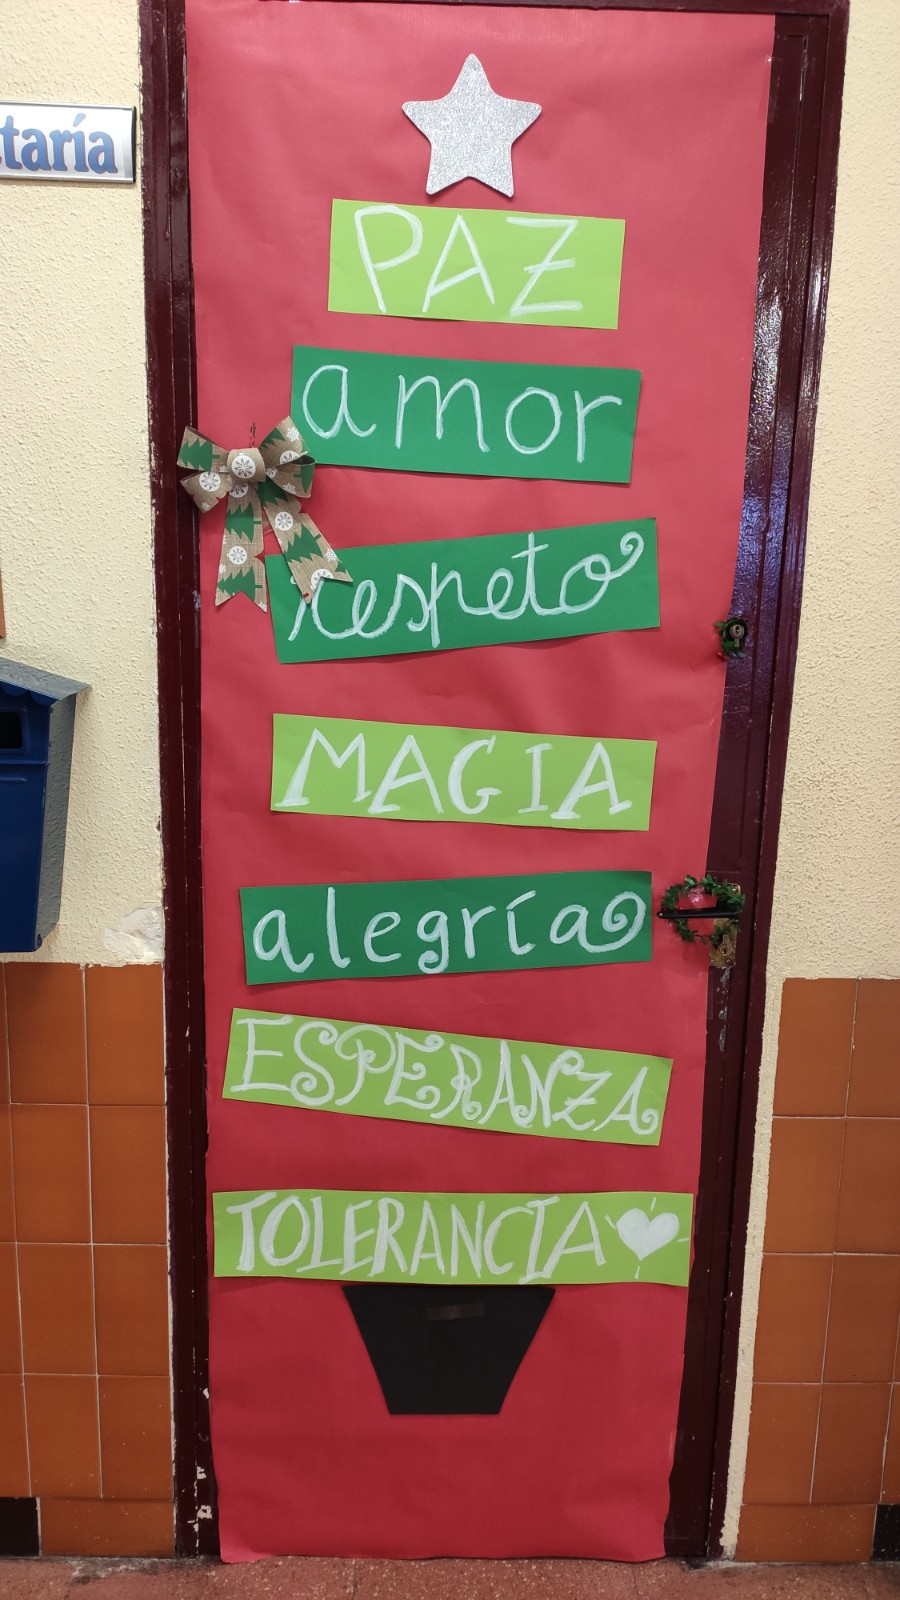 taría
PAZ
amor
respeto
MAGIA
alegría
ESPERANZA
TOLERANCIA